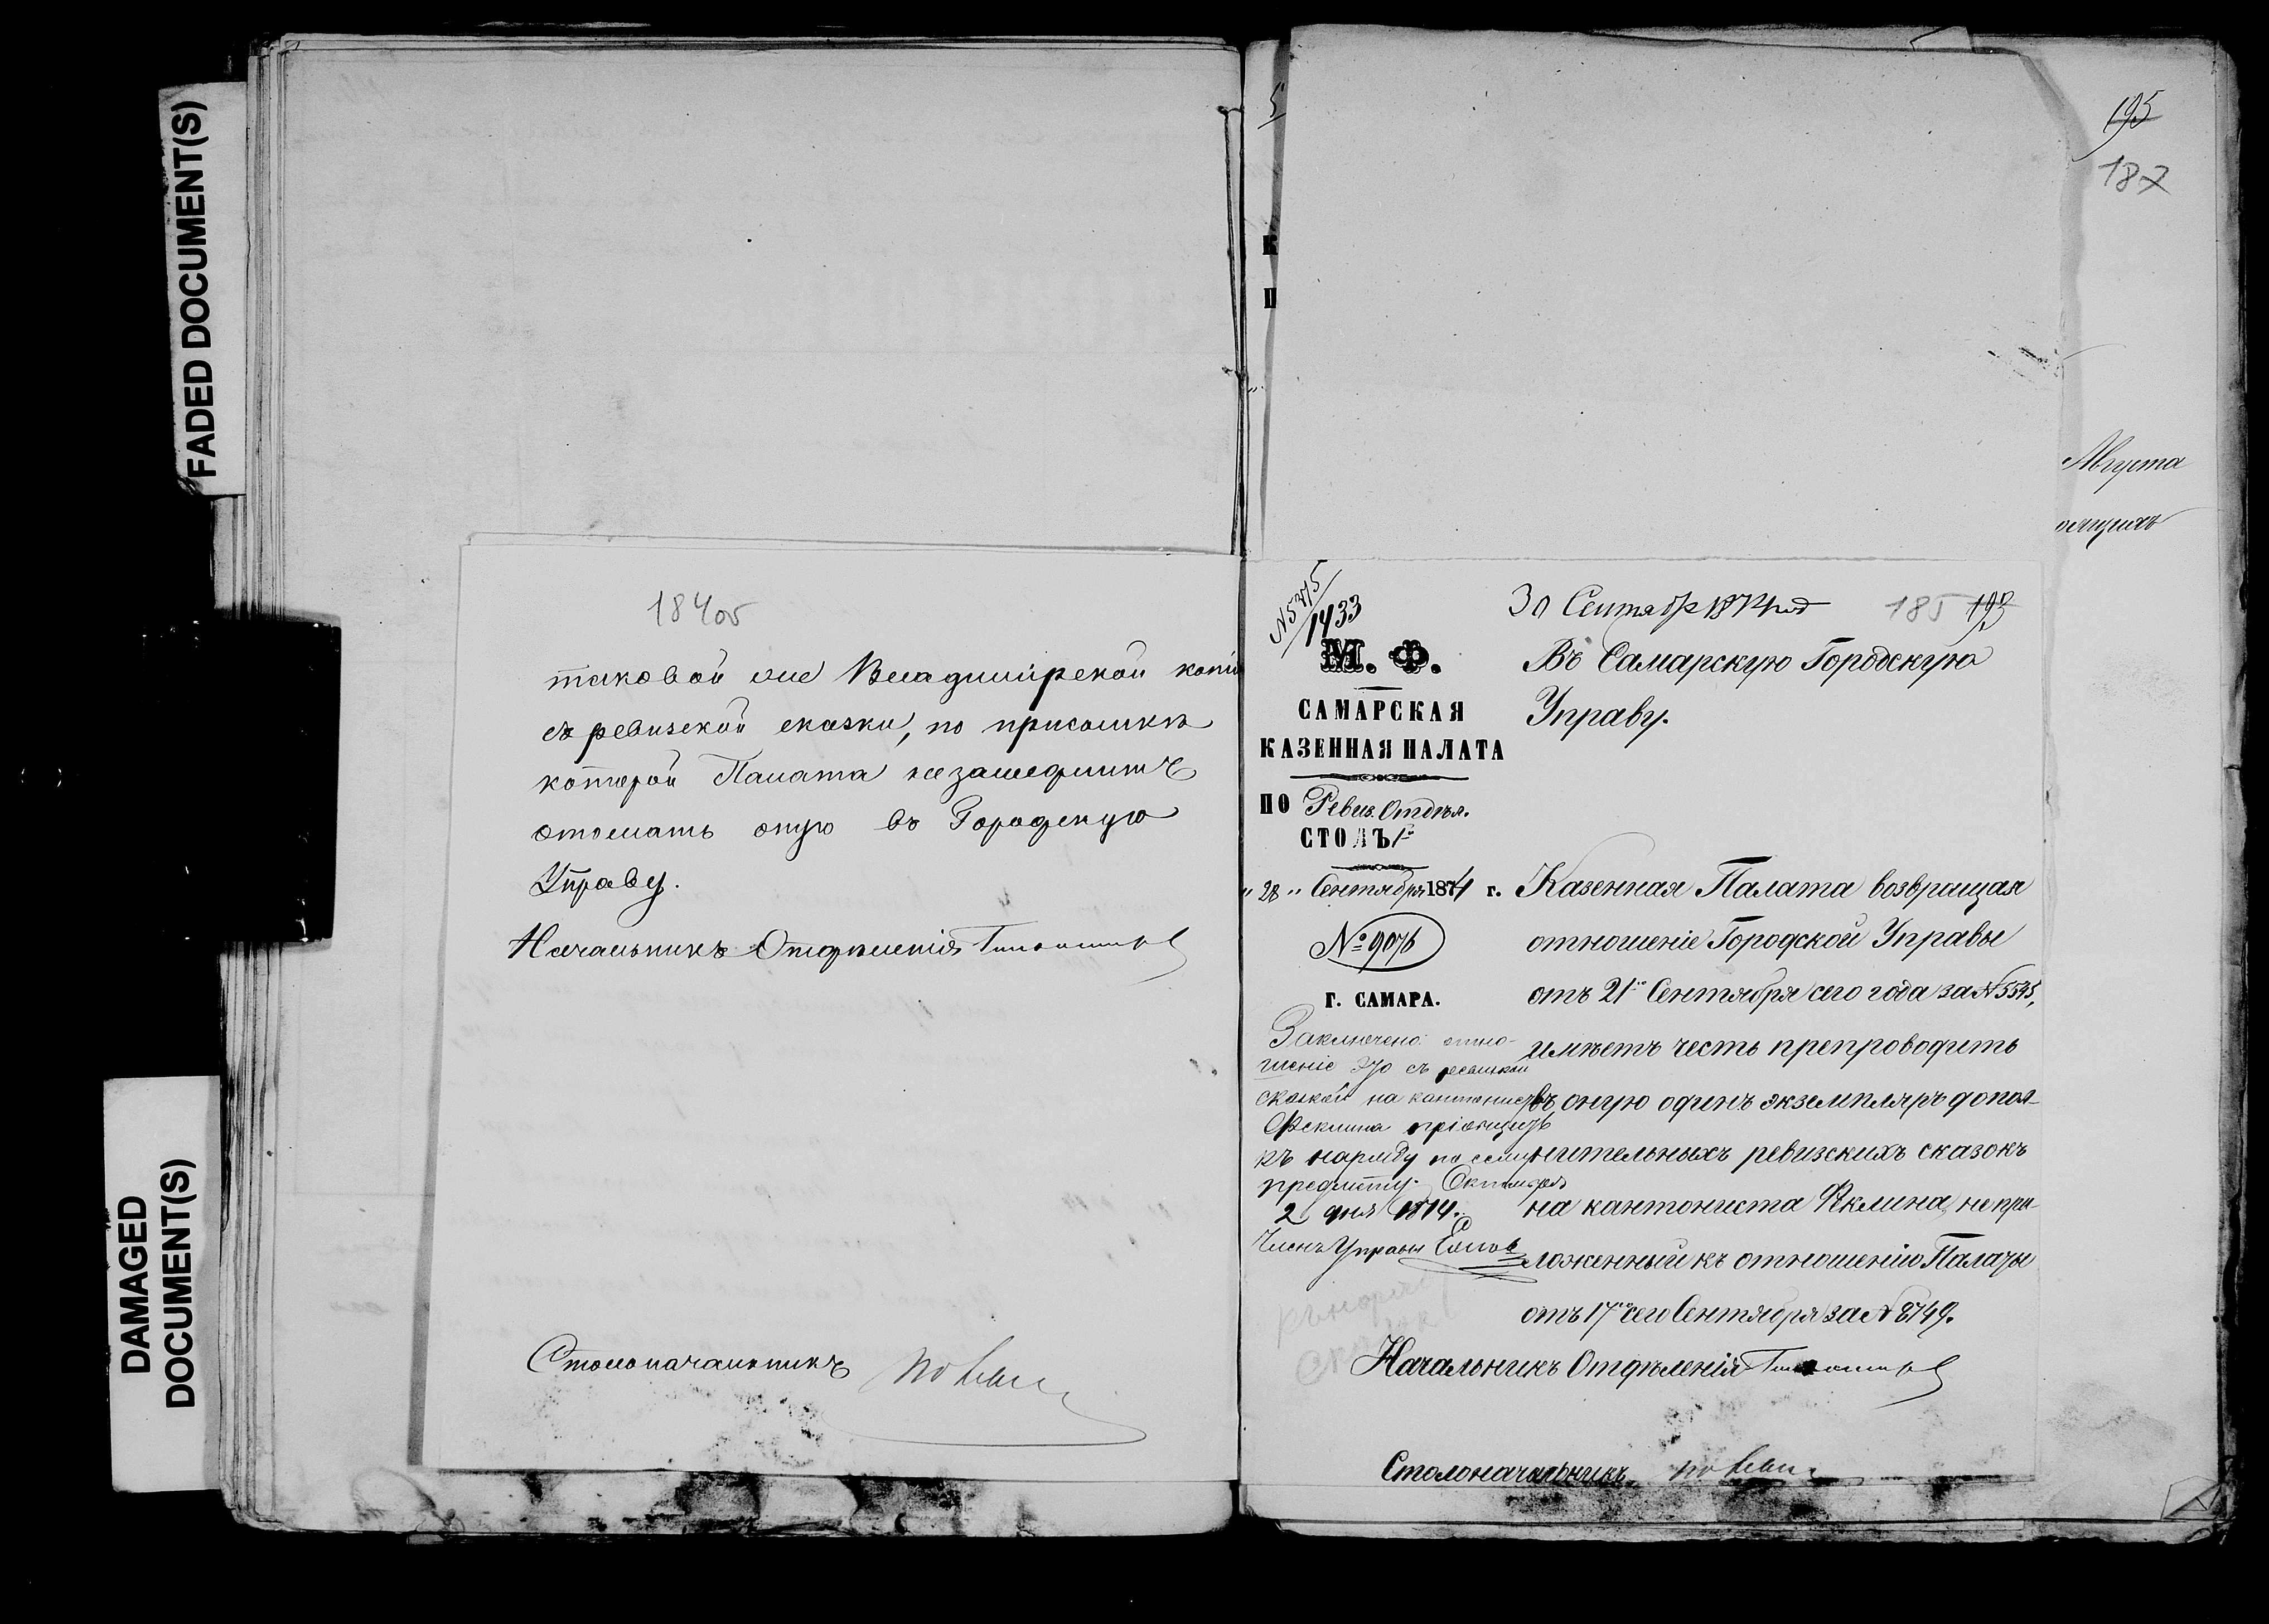 FADED DOCUMENT(S)
DAMAGED
DOCUMENT(S)
184об
таковой же Владимірской копіи
съ ревизской сказки, по присылкѣ
которой Палата незамедлитъ
отослать оную въ Городскую
Управу.
Начальникъ Отдѣленія
Столоначальникъ
5
К
П
195
187
Августа
№ 5375/1433
30 Сентября 1874 год
185 193
М. Ф.
САМАРСКАЯ
КАЗЕННАЯ ПАЛАТА
ПО Ревиз. Отдѣл.
СТОЛЪ 1й
„28„ Сентября 1874 г.
№ 9076
Г. САМАРА.
Заключено: отно-
шеніе это съ ревизской
сказкой на кантониста
Феклина пріобщить
къ наряду по сему
предмету. Октября
2 дня 1874.
Членъ Управы
Въ Самарскую Городскую
Управу.
Казенная Палата возвращая
отношеніе Городской Управы
отъ 21го Сентября сего года за № 5595,
имѣетъ честь препроводить
въ оную одинъ экземпляръ допол-
нительныхъ ревизскихъ сказокъ
на кантониста Феклина, непри-
ложенный къ отношенію Палаты
отъ 17го сего Сентября за № 8749.
Начальникъ Отдѣленія
Столоначальникъ